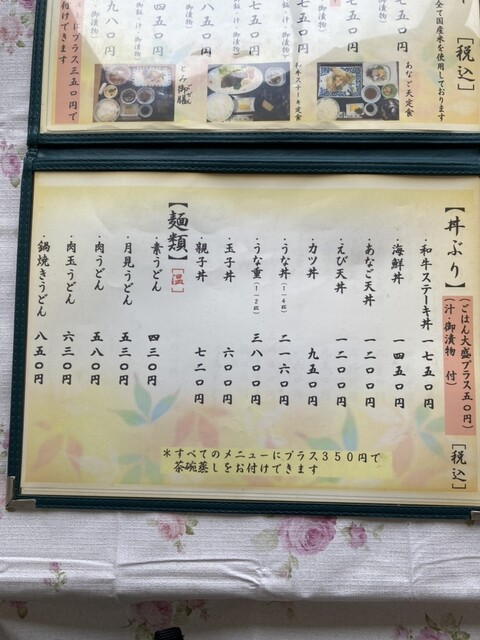 【税込】
全て国産米を使用しております
あなご天定食
和牛ステーキ定食
とみ御膳
にプラス三五〇円で
付けできます
【丼ぶり】
(ごはん大盛プラス五〇円)
(汁・御漬物 付)
【税込】
・和牛ステーキ丼 一七五〇円
・海鮮丼 一四五〇円
・あなご天丼 一二〇〇円
・えび天丼 一二〇〇円
・カツ丼 九五〇円
・うな丼(1/4匹) 二一六〇円
・うな重(1/2匹) 三八〇〇円
・玉子丼 六〇〇円
・親子丼 七二〇円
【麺類】[温]
・素うどん 四三〇円
・月見うどん 五三〇円
・肉うどん 五八〇円
・肉玉うどん 六三〇円
・鍋焼きうどん 八五〇円
*すべてのメニューにプラス350円で
茶碗蒸しをお付けできます